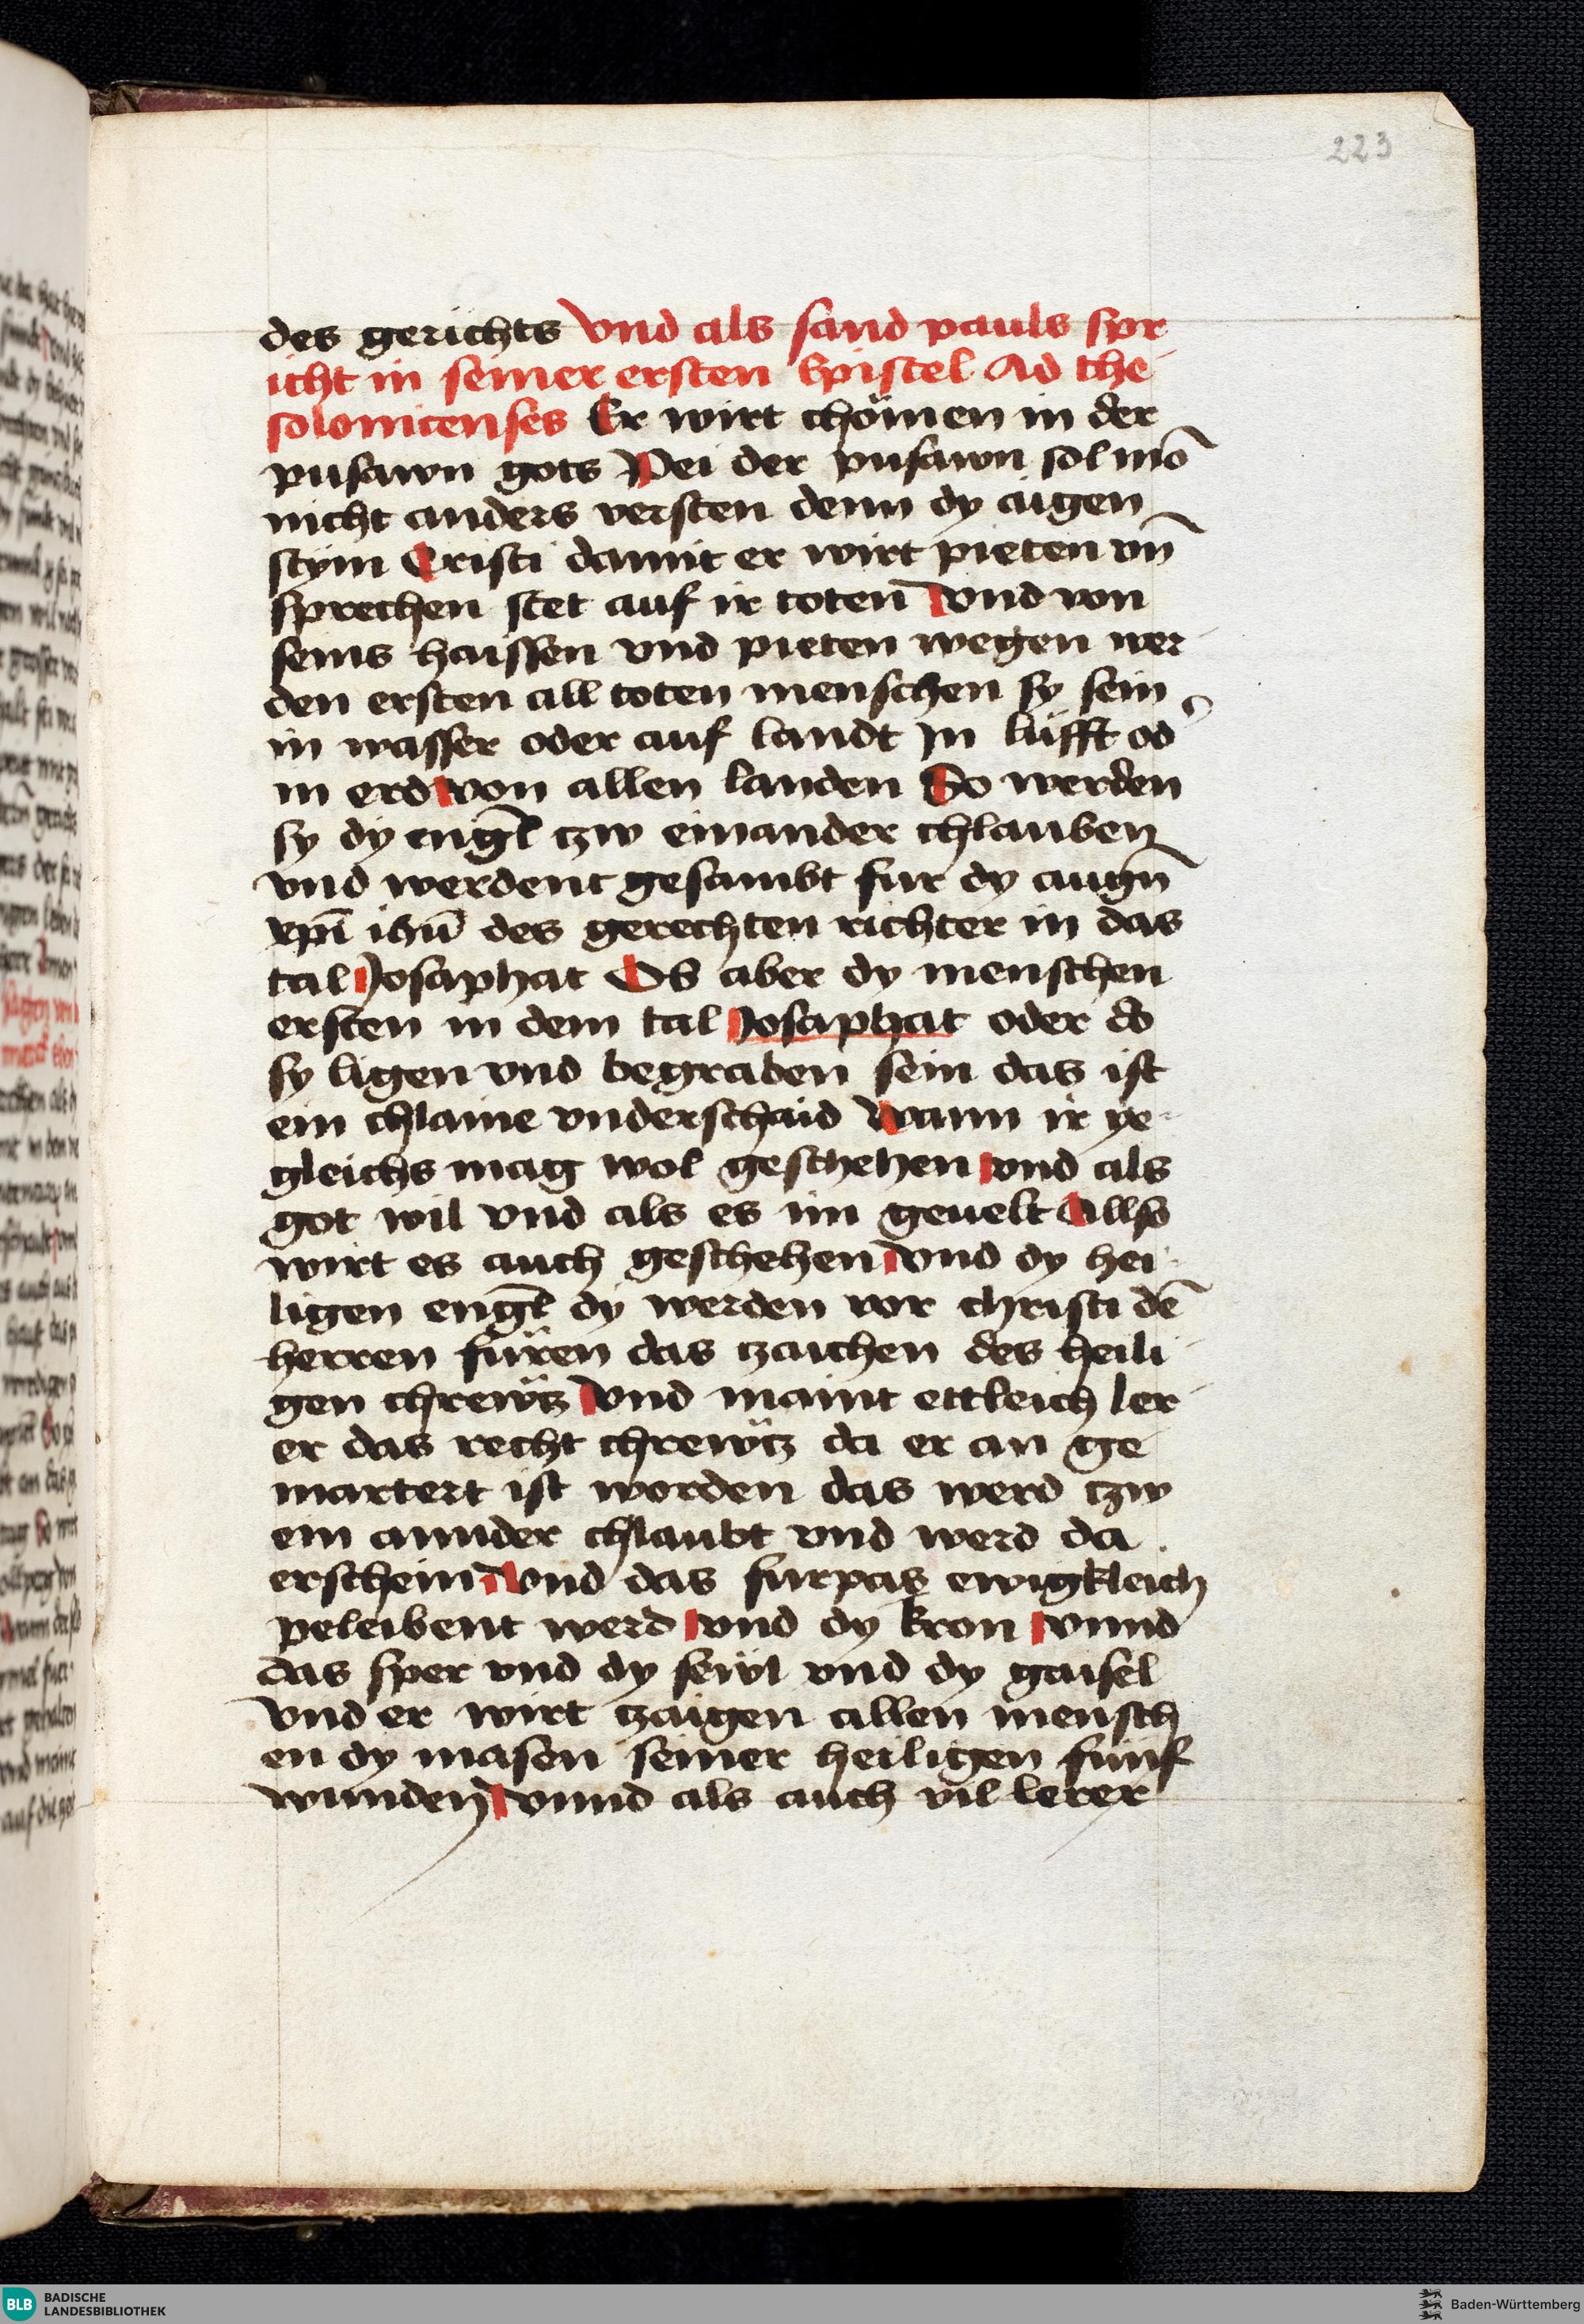 223
des gerichts Vnd als sand pauls spr
icht in seiner ersten Epistel Ad the-
solonicenses Er wirt chömen in der
pusawn gots Pei der pusawn sol mō
nicht anders versten denn dy aigen
stym Cristi damit er wirt pieten vn̄
sprechen stet auf ir toten Vnd von
seins haissen vnd pieten wegen wer-
den ersten all toten menschen sy sein
in wasser oder auf landt In lüfft od
in erd von allen landen So werden
sy dy engl̄ tzw einander chlauben
vnd werdent gesambt fur dy augn̄
xp̄i ih̄u des gerechten richter in das
tal Josaphat Ob aber dy menschen
ersten in dem tal Josaphat oder do
sy ligen vnd begraben sein das ist
ein chlaine vnderschaid Wann ir ye-
gleichs mag wol geschehen vnd als
got wil vnd als es im geuelt Allso
wirt es auch geschehen Vnd dy hei-
ligen engl̄ dy werden vor christi dē
herren füren das tzaichen des heili-
gen chrewtz Vnd maint ettleich ler-
er das recht chrewtz da er an ge-
martert ist worden das werd tzw
ein annder chlaubt vnd werd da
erschein Vnd das furpas ewigkleich
peleibent werd vnd dy kron vnnd
das sper vnd dy sewl vnd dy gaisel
Vnd er wirt tzaigen allen mensch
en dy masen seiner heiligen funf
wunden vnnd als auch vil lerer
BLB BADISCHE
LANDESBIBLIOTHEK
Baden-Württemberg